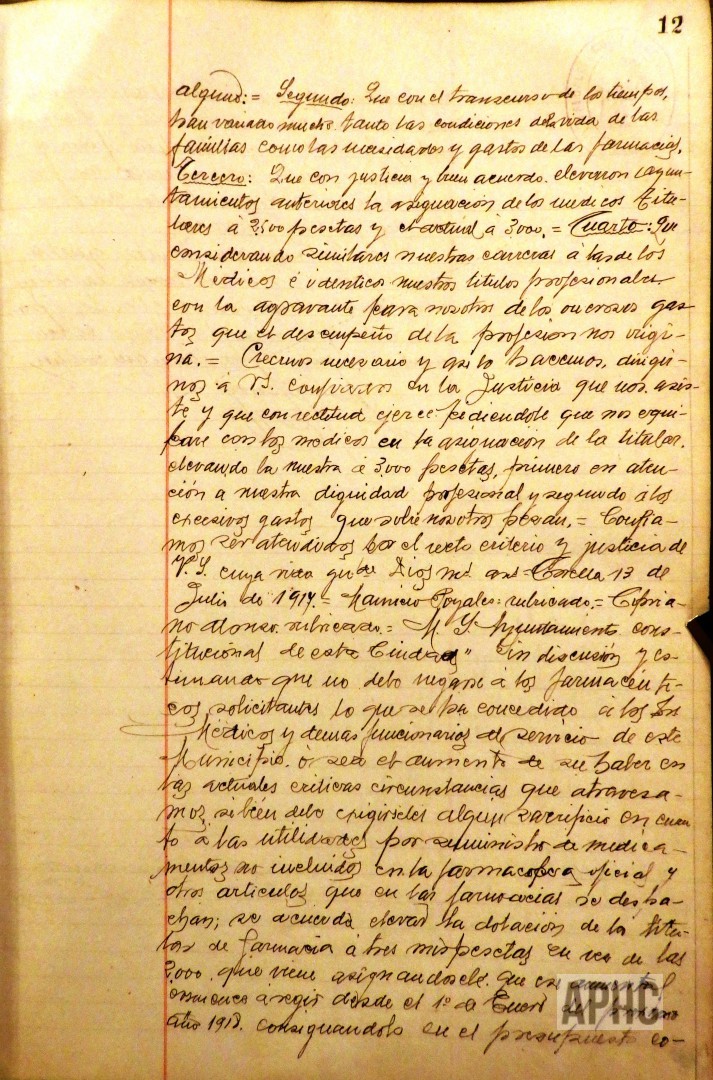 12
alguno: = Segundo: Que con el transcurso de los tiempos,
han variado mucho tanto las condiciones de la vida de las
familias como las necesidades y gastos de las farmacias.
Tercero: Que con justicia y buen acuerdo elevaron Ayun-
tamientos anteriores la asignacion de los medicos Titu-
lares á 2,500 pesetas y el actual á 3000. = Cuarto: Que
considerando similares nuestras carreras á las de los
Médicos é identicos nuestros titulos profesionales
con la agravante para nosotros de los onerosos gas-
tos que el desempeño de la profesion nos origi-
na. = Creemos necesario y asi lo hacemos, dirigir-
nos á V.S. confiados en la Justicia que nos asis-
te y que con rectitud ejerce pidiendole que nos equi-
pare con los medicos en la asignacion de la titular,
elevando la nuestra á 3,000 pesetas, primero en aten-
ción a nuestra dignidad profesional y segundo á los
excesivos gastos que sobre nosotros pesan. = Confia-
mos ser atendidos por el recto criterio y justicia de
V.S. cuya vida gu de Dios m. an. Corella 13 de
Julio de 1917. = Mauricio Poyales: rubricado. = Cipria-
no Alonso. rubricado. = M. Y. Ayuntamiento cons-
titucional de esta Ciudad" Sin discusión y es-
timando que no debe negarse a los farmacéuti-
cos solicitantes lo que se ha concedido á los
Médicos y demas funcionarios al servicio de este
Municipio. ó sea el aumento de su haber en
las actuales criticas circunstancias que atravesa-
mos, si bién debe exigirseles algun sacrificio en cuan-
to á las utilidades por suministro de medica-
mentos no incluidos en la farmacopea oficial y
otros articulos que en las farmacias se despa-
chan; se acuerda elevar la dotación de la titu-
lar de farmacia á tres mil pesetas en vez de las
2,000 que viene asignandosele. que ese aumento
comience á regir desde el 1º de Enero
año 1918. consignandolo en el presupuesto co-
APHC